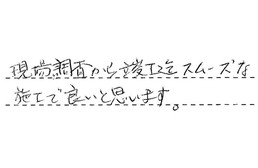 現場調査から竣工迄スムーズな
施工で良いと思います。